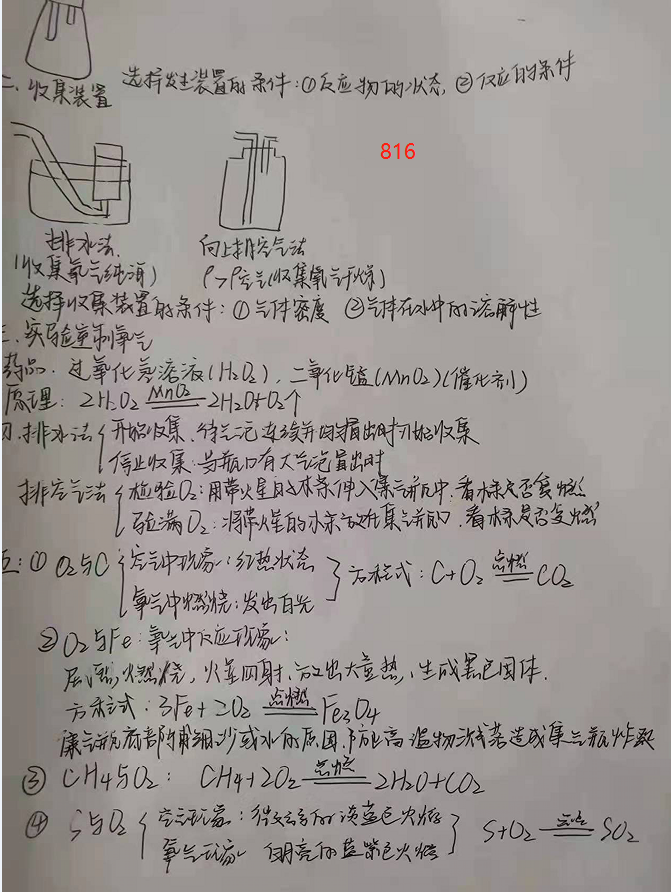 选择发生装置的条件:①反应物的状态,②反应的条件
二、收集装置
816
排水法 向上排空气法
(收集氧气纯净) ρ>ρ空气(收集氧气干燥)
选择收集装置的条件:①气体密度 ②气体在水中的溶解性
三、实验室制氧气
药品:过氧化氢溶液(H₂O₂),二氧化锰(MnO₂)(催化剂)
原理:2H₂O₂ MnO₂══ 2H₂O+O₂↑
四、排水法{开始收集:待气泡连续并均匀冒出时开始收集
停止收集:当瓶口有大气泡冒出时
排空气法{检验O₂:用带火星的木条伸入集气瓶中,看木条是否复燃
验满O₂:将带火星的木条放在集气瓶口,看木条是否复燃
五:①O₂与C{空气中现象:红热状态
氧气中燃烧:发出白光}方程式:C+O₂ 点燃══ CO₂
②O₂与Fe:氧气中反应现象:
剧烈燃烧,火星四射,放出大量热,生成黑色固体.
方程式:3Fe+2O₂ 点燃══ Fe₃O₄
集气瓶底部铺细沙或水的原因,防止高温物溅落造成集气瓶炸裂
③CH4与O₂: CH4+2O₂ 点燃══ 2H₂O+CO₂
④S与O₂{空气现象:微弱的淡蓝色火焰
氧气现象 明亮的蓝紫色火焰} S+O₂ 点燃══ SO₂